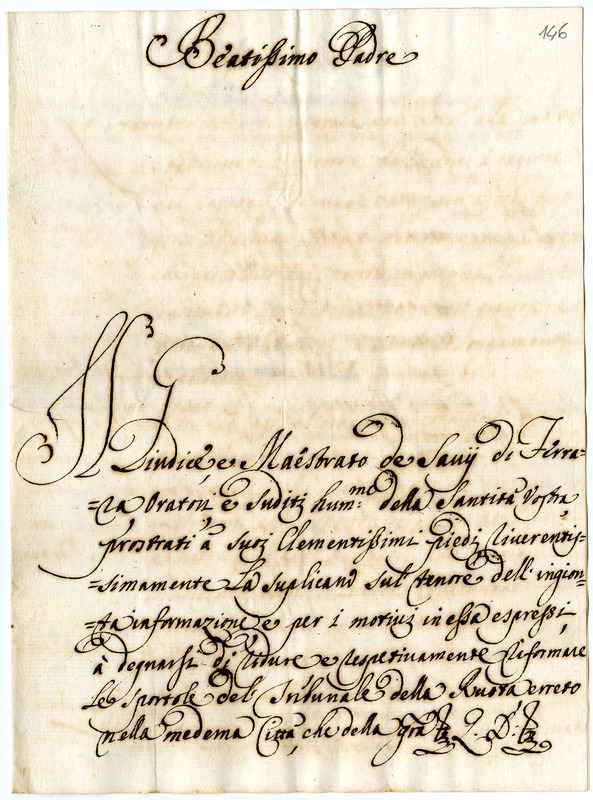 146
Beatissimo Padre
Il Giudice, e Maestrato de Savij di Ferra=
=ra Oratori e Suditi hum.mi della Santità Vostra
prostrati à suoi Clementissimi piedi riverentis=
=simamente La suplicano sul tenore dell' ingion=
=ta informazione e per i motivi in essa espressi,
à degnarsi di ridure e respetivamente riformare
le Sportole del Tribunale della Ruota ereto
nella medema Città, che della gra